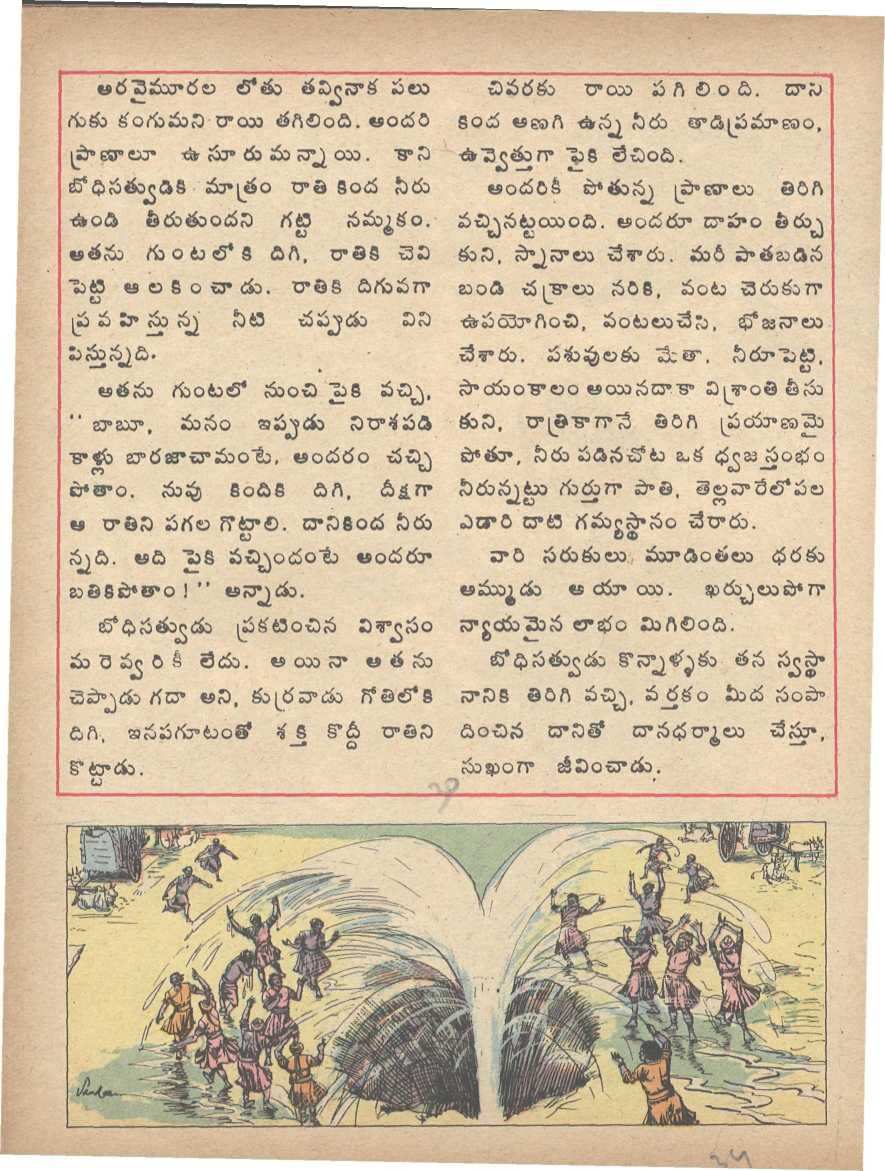 అరవైమూరల లోతు తవ్వినాక పలు
గుకు కంగుమని రాయి తగిలింది. అందరి
ప్రాణాలూ ఉసూరుమన్నాయి. కాని
బోధిసత్వుడికి మాత్రం రాతి కింద నీరు
ఉండి తీరుతుందని గట్టి నమ్మకం.
అతను గుంటలోకి దిగి, రాతికి చెవి
పెట్టి ఆలకించాడు. రాతికి దిగువగా
ప్రవహిస్తున్న నీటి చప్పుడు విని
పిస్తున్నది.
అతను గుంటలో నుంచి పైకి వచ్చి,
‘‘బాబూ, మనం ఇప్పుడు నిరాశపడి
కాళ్లు బారజాచామంటే, అందరం చచ్చి
పోతాం. నువు కిందికి దిగి, దీక్షగా
ఆ రాతిని పగల గొట్టాలి. దానికింద నీరు
న్నది. అది పైకి వచ్చిందంటే అందరూ
బతికిపోతాం!’’ అన్నాడు.
బోధిసత్వుడు ప్రకటించిన విశ్వాసం
మరెవ్వరికీ లేదు. అయినా అతను
చెప్పాడు గదా అని, కుర్రవాడు గోతిలోకి
దిగి, ఇనపగూటంతో శక్తి కొద్దీ రాతిని
కొట్టాడు.
చివరకు రాయి పగిలింది. దాని
కింద అణగి ఉన్న నీరు తాడిప్రమాణం,
ఉవ్వెత్తుగా పైకి లేచింది.
అందరికీ పోతున్న ప్రాణాలు తిరిగి
వచ్చినట్టయింది. అందరూ దాహం తీర్చు
కుని, స్నానాలు చేశారు. మరీ పాతబడిన
బండి చక్రాలు నరికి, వంట చెరుకుగా
ఉపయోగించి, వంటలుచేసి, భోజనాలు
చేశారు. పశువులకు మేతా, నీరూపెట్టి,
సాయంకాలం అయినదాకా విశ్రాంతి తీసు
కుని, రాత్రికాగానే తిరిగి ప్రయాణమై
పోతూ, నీరు పడినచోట ఒక ధ్వజస్తంభం
నీరున్నట్టు గుర్తుగా పాతి, తెల్లవారేలోపల
ఎడారి దాటి గమ్యస్థానం చేరారు.
వారి సరుకులు మూడింతలు ధరకు
అమ్ముడు అయాయి. ఖర్చులుపోగా
న్యాయమైన లాభం మిగిలింది.
బోధిసత్వుడు కొన్నాళ్ళకు తన స్వస్థా
నానికి తిరిగి వచ్చి, వర్తకం మీద సంపా
దించిన దానితో దానధర్మాలు చేస్తూ,
సుఖంగా జీవించాడు.
30